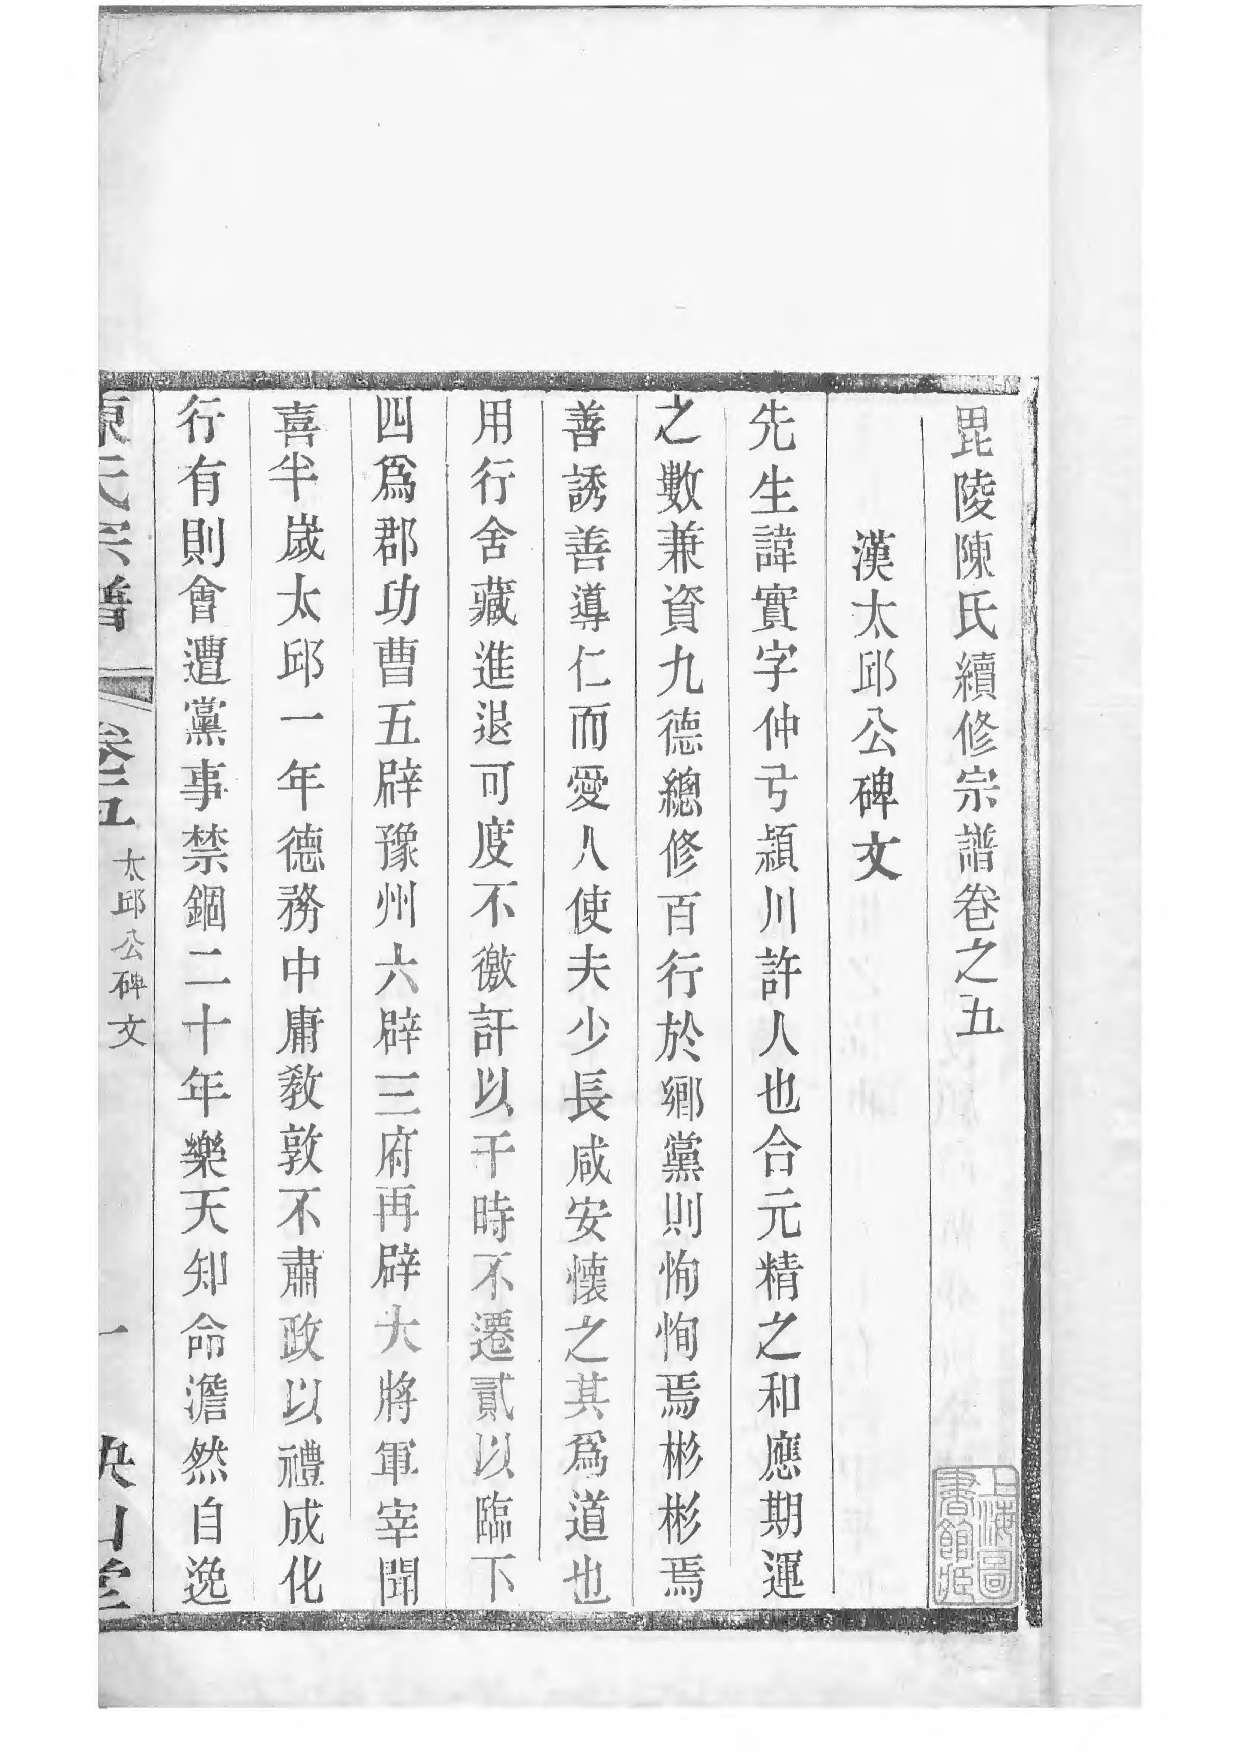 毘陵陳氏續修宗譜卷之五
漢太邱公碑文
先生諱實字仲弓潁川許人也合元精之和應期運
之數兼資九德總修百行於鄉黨則恂恂焉彬彬焉
善誘善導仁而愛人使夫少長咸安懷之其爲道也
用行舍藏進退可度不徼訐以干時不遷貳以臨下
四爲郡功曹五辟豫州六辟三府再辟大將軍宰聞
喜半嵗太邱一年德務中庸教敦不肅政以禮成化
行有則會遭黨事禁錮二十年樂天知命澹然自逸
陳氏宗譜 卷五 太邱公碑文 一
上海圖書館藏